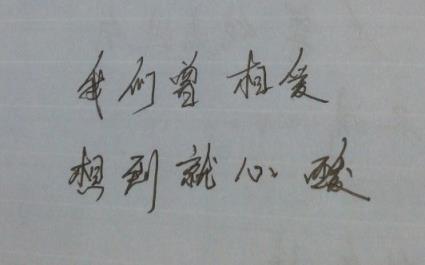 我们曾相爱
想到就心酸